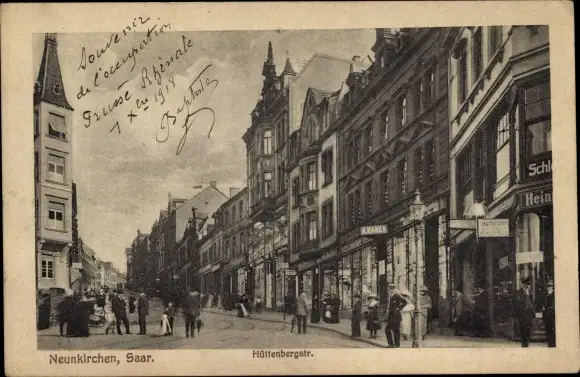 Souvenir
de l'occupation
Grusse Rhénale
1918
Baptista
A. HABER
Schl
Hein
Neunkirchen, Saar.
Hüttenbergstr.